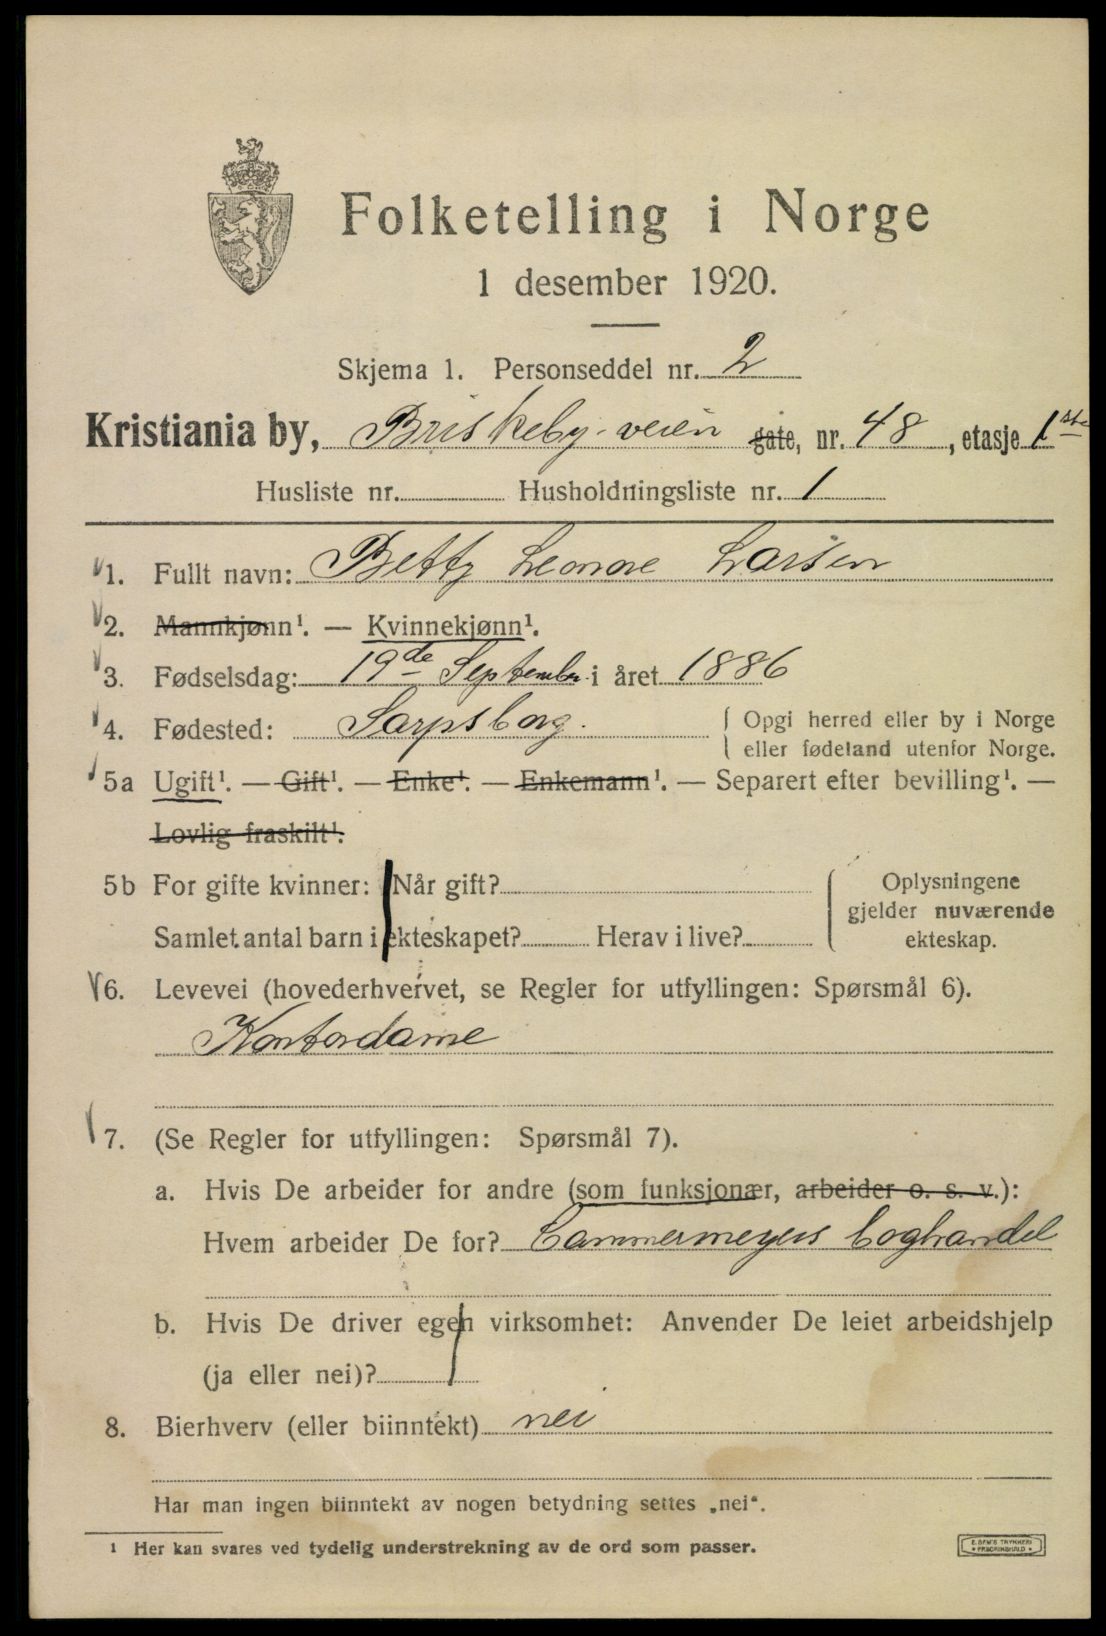 Folketelling i Norge
1 desember 1920.
Skjema 1. Personseddel nr. 2
Kristiania by, Briskeby-veien gate, nr. 48, etasje 1ste
Husliste nr. Husholdningsliste nr. 1
1. Fullt navn: Betty Lenore Larsen
2. Mannkjønn¹. — Kvinnekjønn¹.
3. Fødselsdag: 19de September i året 1886
4. Fødested: Sarpsborg. Opgi herred eller by i Norge
eller fødeland utenfor Norge.
5a Ugift¹. — Gift¹. — Enke¹. — Enkemann¹. — Separert efter bevilling¹. —
Lovlig fraskilt¹.
5b For gifte kvinner: Når gift? Oplysningene
gjelder nuværende
Samlet antal barn i ekteskapet? Herav i live? ekteskap.
6. Levevei (hovederhvervet, se Regler for utfyllingen: Spørsmål 6).
Kontordame
7. (Se Regler for utfyllingen: Spørsmål 7).
a. Hvis De arbeider for andre (som funksjonær, arbeider o. s. v.):
Hvem arbeider De for? Cammermeyers boghandel
b. Hvis De driver egen virksomhet: Anvender De leiet arbeidshjelp
(ja eller nei)?
8. Bierhverv (eller biinntekt) nei
Har man ingen biinntekt av nogen betydning settes „nei“.
¹ Her kan svares ved tydelig understrekning av de ord som passer.
E. SEM'S TRYKKERI
FREDRIKSHALD